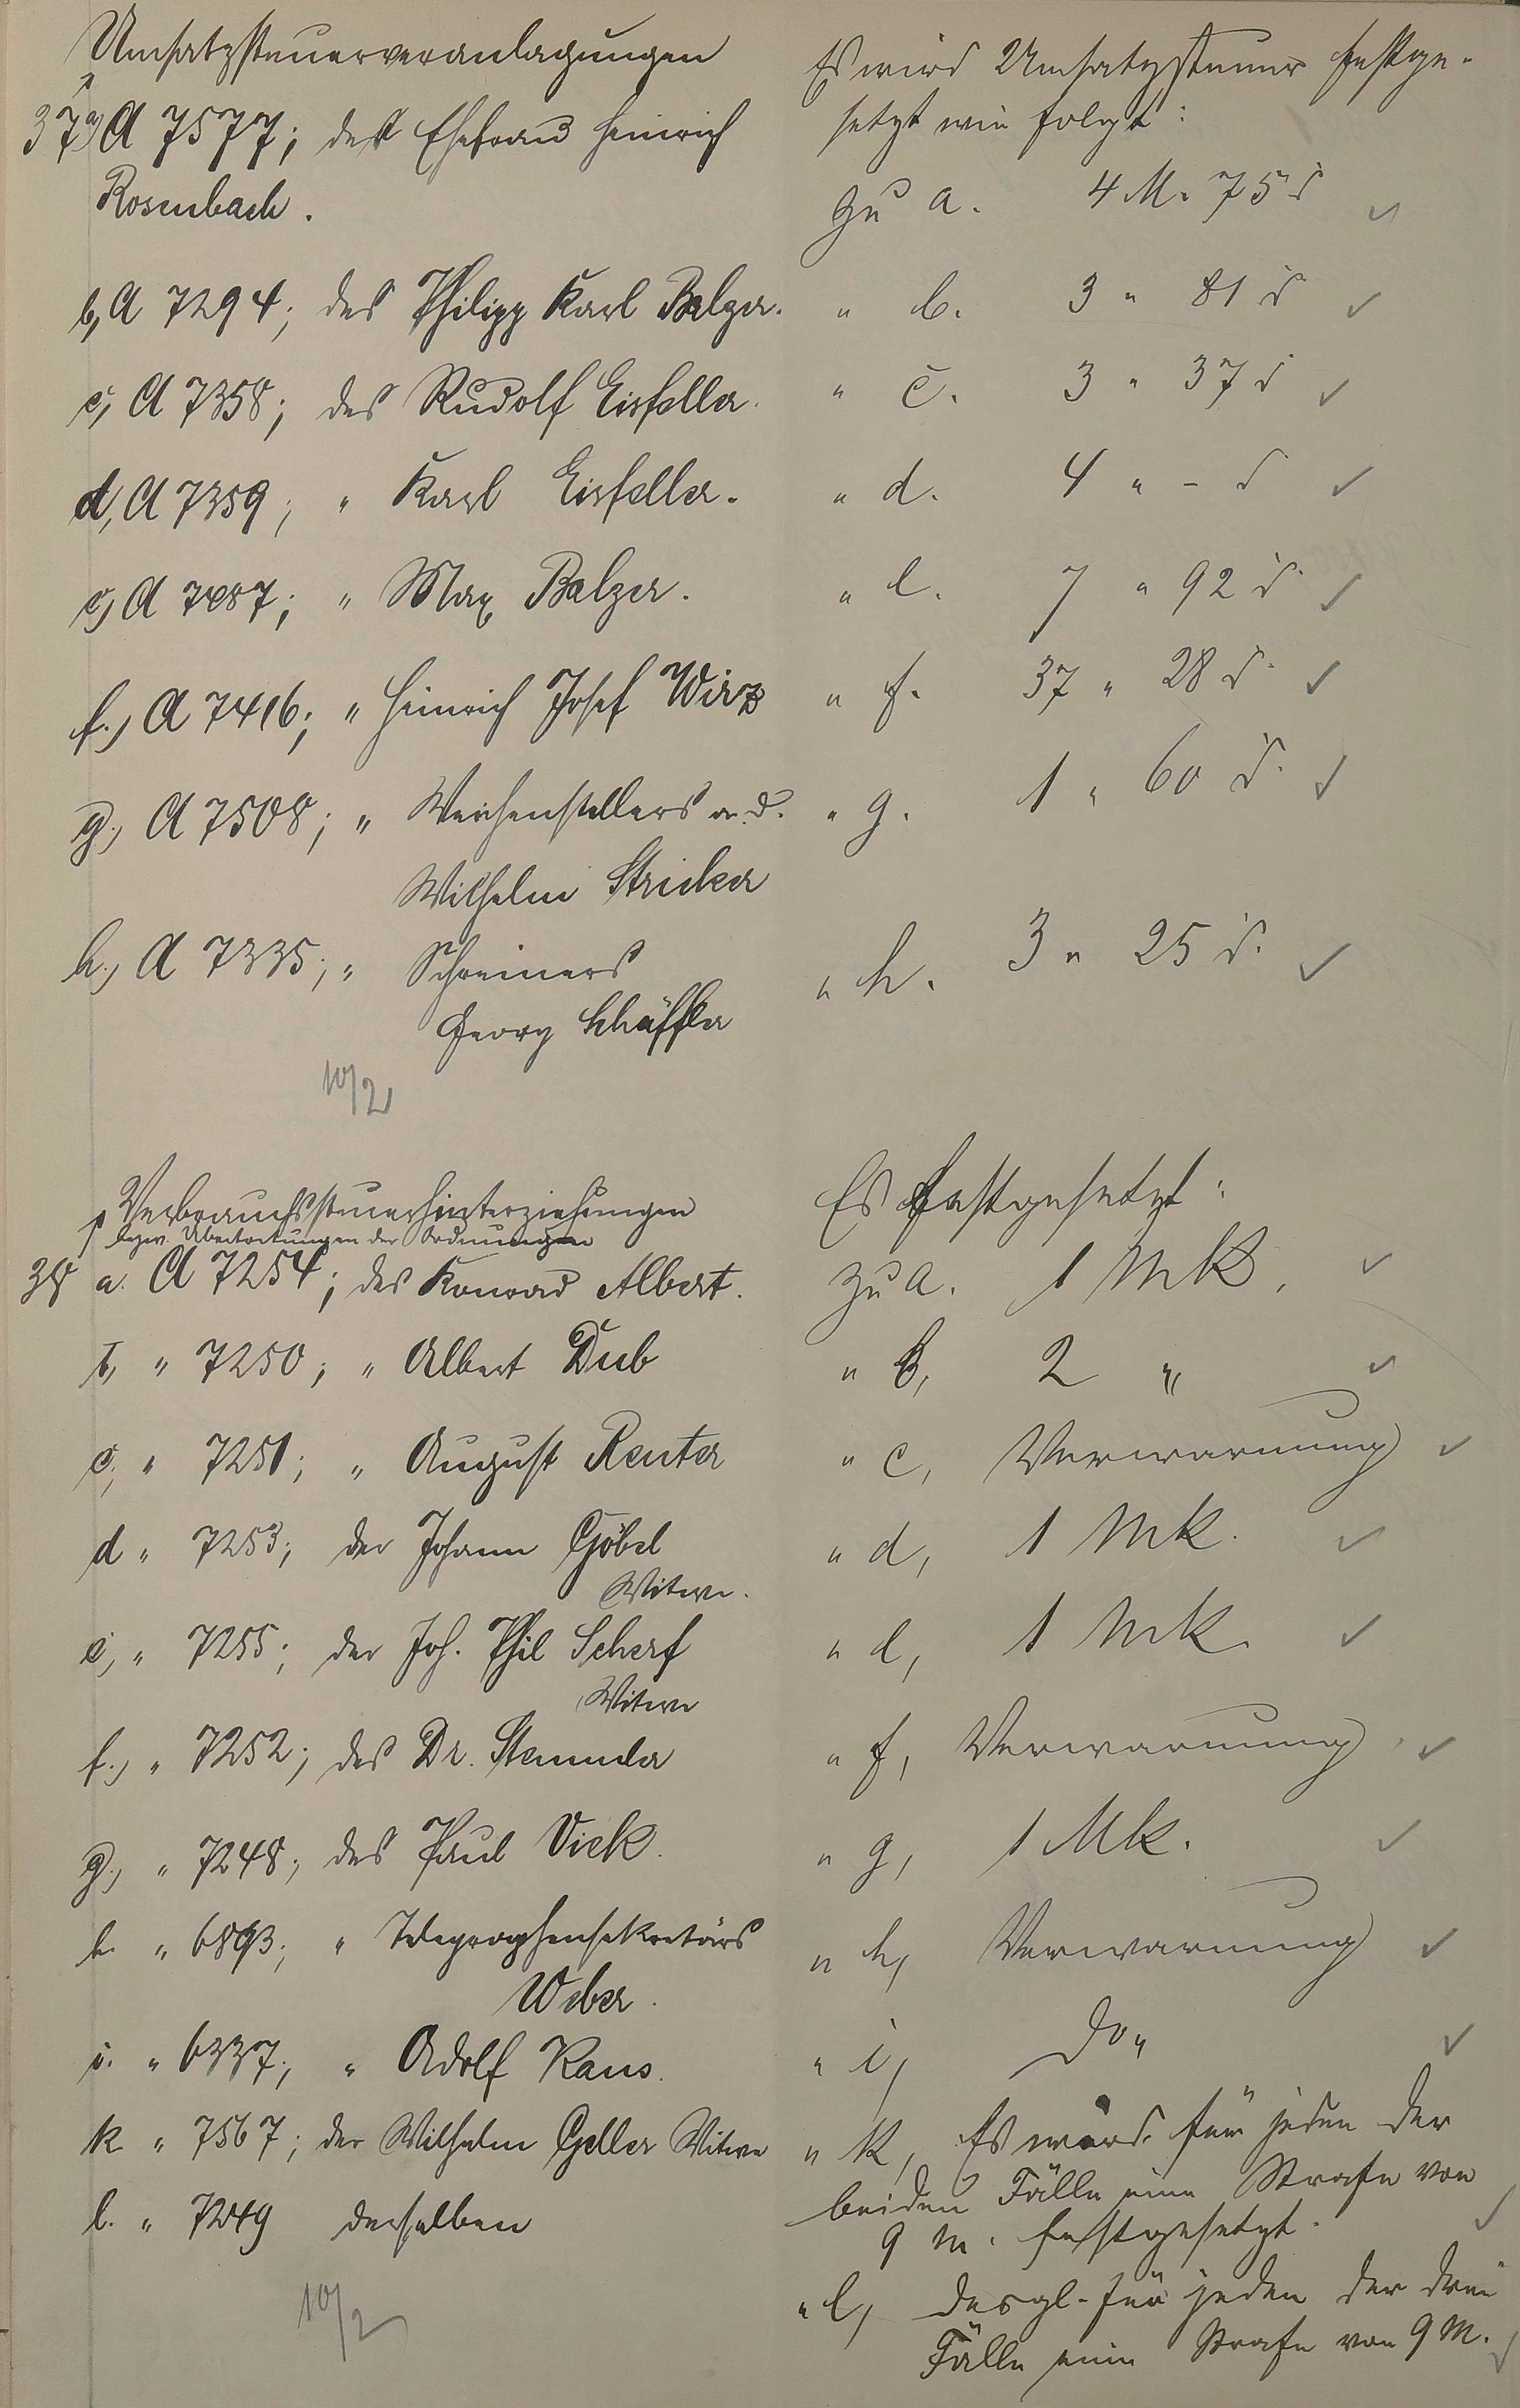 Umsatzsteuerveranlagungen
37 a) A 7577; der Ehefrau Heinrich
Rosenbach.
b, A 7294; des Philipp Karl Balzer.
c, A 7358; des Rudolf Eisfeller.
d, A 7359; " Karl Eisfeller.
e, A 7287; " Max Balzer.
f.) A 7416; " Heinrich Josef Wirz
g.) A 7508; " Weichenstellers a. D.
Wilhelm Stricker
h.) A 7335; " Schreiners
Georg Schäffler
10/2
Verbrauchssteuerhinterziehungen
bezw. Übertretungen der Ordnungen
38 a. A 7254; des Konrad Albert.
b, " 7250; " Albert Dub
c, " 7251; " August Reuter
d " 7253; der Johann Göbel
Witwe.
e, " 7255; der Joh. Phil Scherf
Witwe
f.) " 7252; des Dr. Stemmler
g.) " 7248; des Paul Vick.
h. " 6893; " Telegraphensekretärs
Weber.
i. " 6337; " Adolf Kaus.
k " 7567; der Wilhelm Geller Witwe
l. " 7249 derselben
10/2
Es wird Umsatzsteuer festge-
setzt wie folgt:
zu a. 4 M. 75 ₰
" b. 3 " 81 ₰
" c. 3 " 37 ₰
" d. 4 " - ₰
" e. 7 " 92 ₰
" f. 37 " 28 ₰
" g. 1 " 60 ₰
" h. 3 " 25 ₰
Es festgesetzt:
zu a. 1 Mk.
" b, 2 "
" c, Verwarnung
" d, 1 Mk.
" e, 1 Mk.
" f, Verwarnung
" g, 1 Mk.
" h, Verwarnung
" i, do"
" k, Es wird für jeden der
beiden Fälle eine Strafe von
9 M. festgesetzt.
" l, desgl. für jeden der drei
Fälle eine Strafe von 9 M.